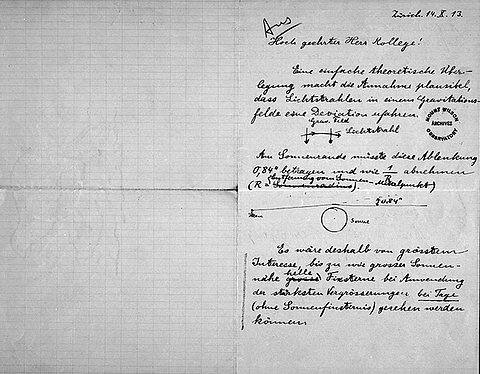 Zürich. 14. X. 13.
Hoch geehrter Herr Kollege!
Eine einfache theoretische Über-
legung macht die Annahme plausibel,
dass Lichtstrahlen in einem Gravitations-
felde eine Deviation erfahren.
Grav. Feld
Lichtstrahl
MOUNT WILSON
ARCHIVES
OBSERVATORY
Am Sonnenrande müsste diese Ablenkung
0,84" betragen und wie 1/R abnehmen
(R = Sonnenradius Entfernung vom Sonnen-Mittelpunkt)
0.84"
Stern
Sonne
Es wäre deshalb von grösstem
Interesse, bis zu wie grosser Sonnen-
nähe grosse helle Fixsterne bei Anwendung
der stärksten Vergrösserungen bei Tage
(ohne Sonnenfinsternis) gesehen werden
können.